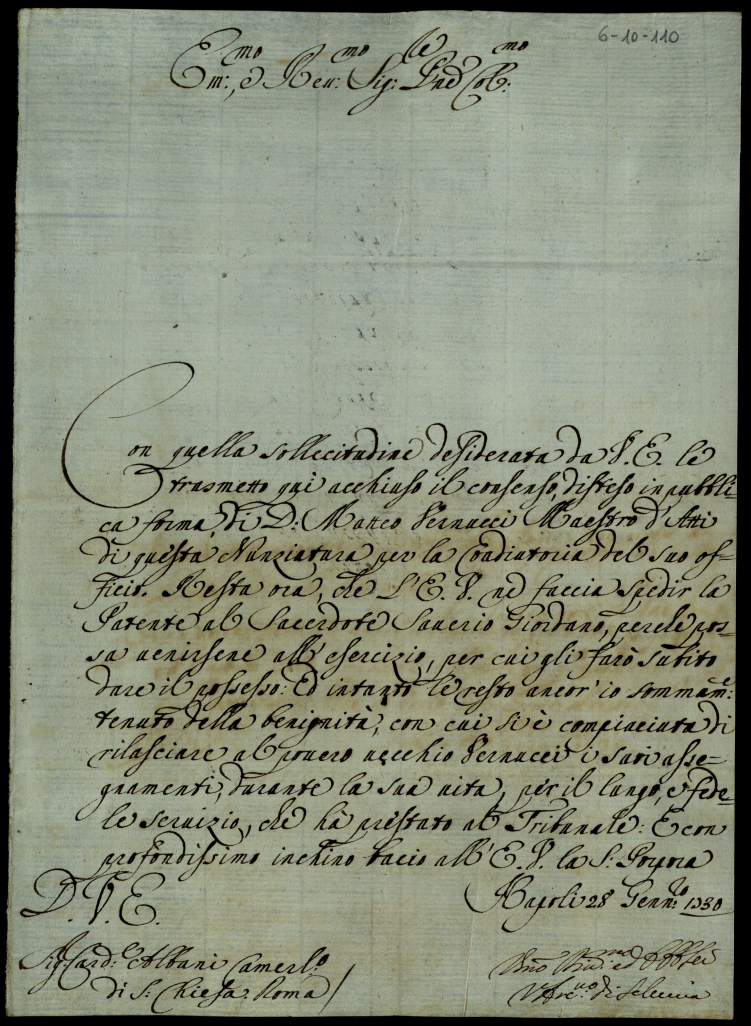 6-10-110
Em:mo, e Reu:mo Sig: Pne Col:mo
Con quella sollecitudine desiderata da V. E. le
trasmetto quì acchiuso il consenso, disteso in pubbli-
ca forma, di D: Matteo Vernucci Maestro d'Atti
di questa Nunziatura per la Coadiutoria del suo of-
ficio. Resta ora, che L'E. V. ne faccia spedir la
Patente al Sacerdote Sauerio Giordano, perche pos-
sa uenirsene all'esercizio, per cui gli farò subito
dare il possesso: Ed intanto le resto ancor'io sommam:e
tenuto della benignità, con cui si è compiaciuta di
rilasciare al pouero uecchio Vernucci i suoi asse-
gnamenti, durante la sua uita, per il lungo, e fede-
le seruizio, che hà prestato al Tribunale: E con
profondissimo inchino bacio all'E. V. la S: Porpora
D. V. E.
Napoli 28 Genn:ro 1730
Sig: Card:le Albani Camerl:o
di S: Chiesa. Roma
ed
di Seleucia